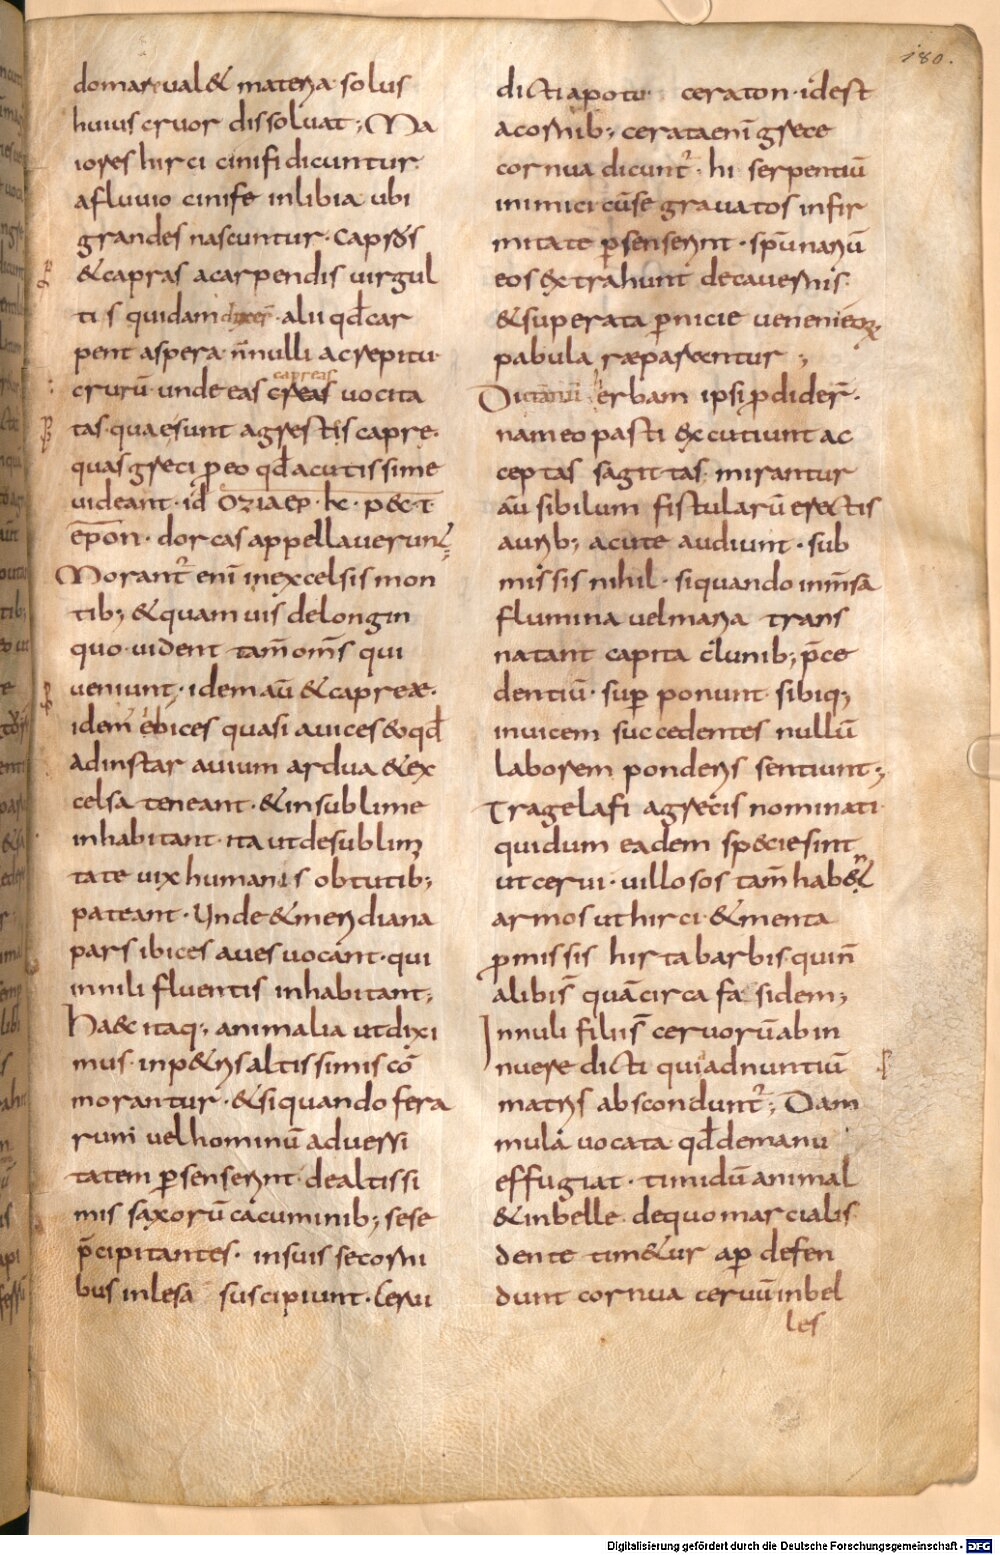 180.
domare ual& materia solus
huius cruor dissoluat; Ma
iores hirci cinifi dicuntur
a fluuio cinife inlibia ubi
grandes nascuntur · capros
& capras acarpendis uirgul
tis quidam dixer̄ · alii qd̄ car
pent aspera · n̄nulli acrepitu
capreas
crurū · unde eas creas uocita
tas · quaesunt agrestis capre ·
quas greci p̱ eo qd̄ acutissime
uideant · id
dorcas appellauerunt;
Morant᷑ eni᷑ inexcelsis mon
tib; & quam uis delongin
quo · uident tam̄ om̄s qui
ueniunt · idem aū & capreæ ·
idem ebices quasi auices eo qd̄
adinstar auium ardua & ex
celsa teneant · & insublime
inhabitant · ita utdesublimi
tate uix humanis obtutib;
pateant · Unde & meridiana
pars ibices aues uocant · qui
innili fluentis inhabitant;
Haec itaq; animalia utdixi
mus · inp&ris altissimis cō
morantur · & siquando fera
rum uel hominū aduersi
tatem p̱senserint · dealtissi
mis saxorū cacuminib; sese
p̄cipitantes · insuis secorni
bus inlesa suscipiunt · Cerui
dicti apotu ceraton · idest
acornib; cerata eni᷑ grece
cornua dicunt᷑ · hi serpentiū
inimici cū se grauatos infir
mitate p̱senserint · sp̄u nariū
eos extrahunt decauernis ·
& superata p̱nicie uenenieorꝝ
pabula ræparæntur ;
Dictanū erbam ipsi p̱dider̄ ·
nam eo pasti excutiunt ac
ceptas sagittas · mirantur
aū sibilum fistularū erectis
aurib; acute audiunt · sub
missis nihil · siquando inm̄sa
flumina uel maria trans
natant capita clunib; p̄ce
dentiū · sup̱ ponunt sibiq;
inuicem succedentes nullū
laborem ponderis sentiunt;
Tragelafi agrecis nominati
quidum eadem speciesint
utcerui · uillosos tam̄ hab&n̄
armos uthirci & menta
p̱missis hirta barbis · quin̄
alibis̄ quācirca fasidem;
Innuli filiis̄ ceruorū abin
nuere dicti quiadnuntiū
matris abscondunt᷑; Dam
mula uocata qd̄ demanu
effugiat · timidū animal
& inbelle · dequo marcialis
dente tim&ur ap̱ defen
dunt cornua ceruū inbel
les
Digitalisierung gefördert durch die Deutsche Forschungsgemeinschaft - DFG